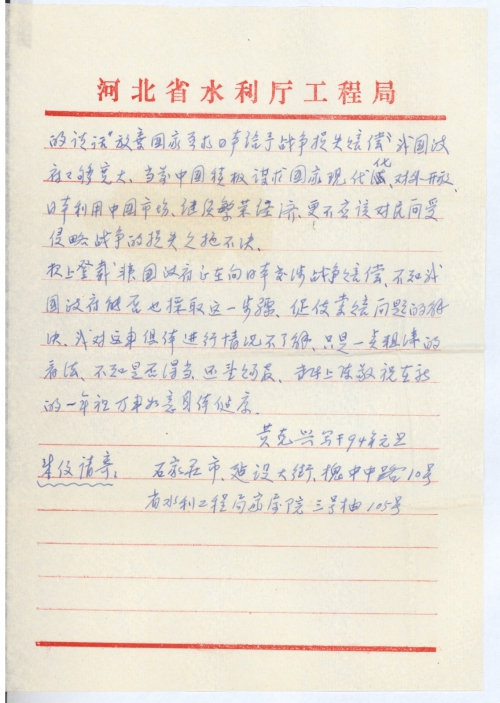 河北省水利厅工程局
的谈话"放弃国家要求日本给予战争损失赔偿"我国政
府已够宽大,当前中国积极谋求国家现代化,对外开放,
日本利用中国市场,继续繁荣经济,更不应该对民间受
侵略战争的损失久拖不决。
报上登载韩国政府正在向日本交涉战争赔偿,不知我
国政府能否也採取这一步骤,促使索赔问题的解
决,我对这事具体进行情况不了解,只是一点粗浅的
看法,不知是否得当,还望
的一年祝万事如意身体健康。
黄克兴写于94年元旦
来信请寄: 石家庄市,建设大街,槐中中路10号
省水利工程局家属院 三号楼105号